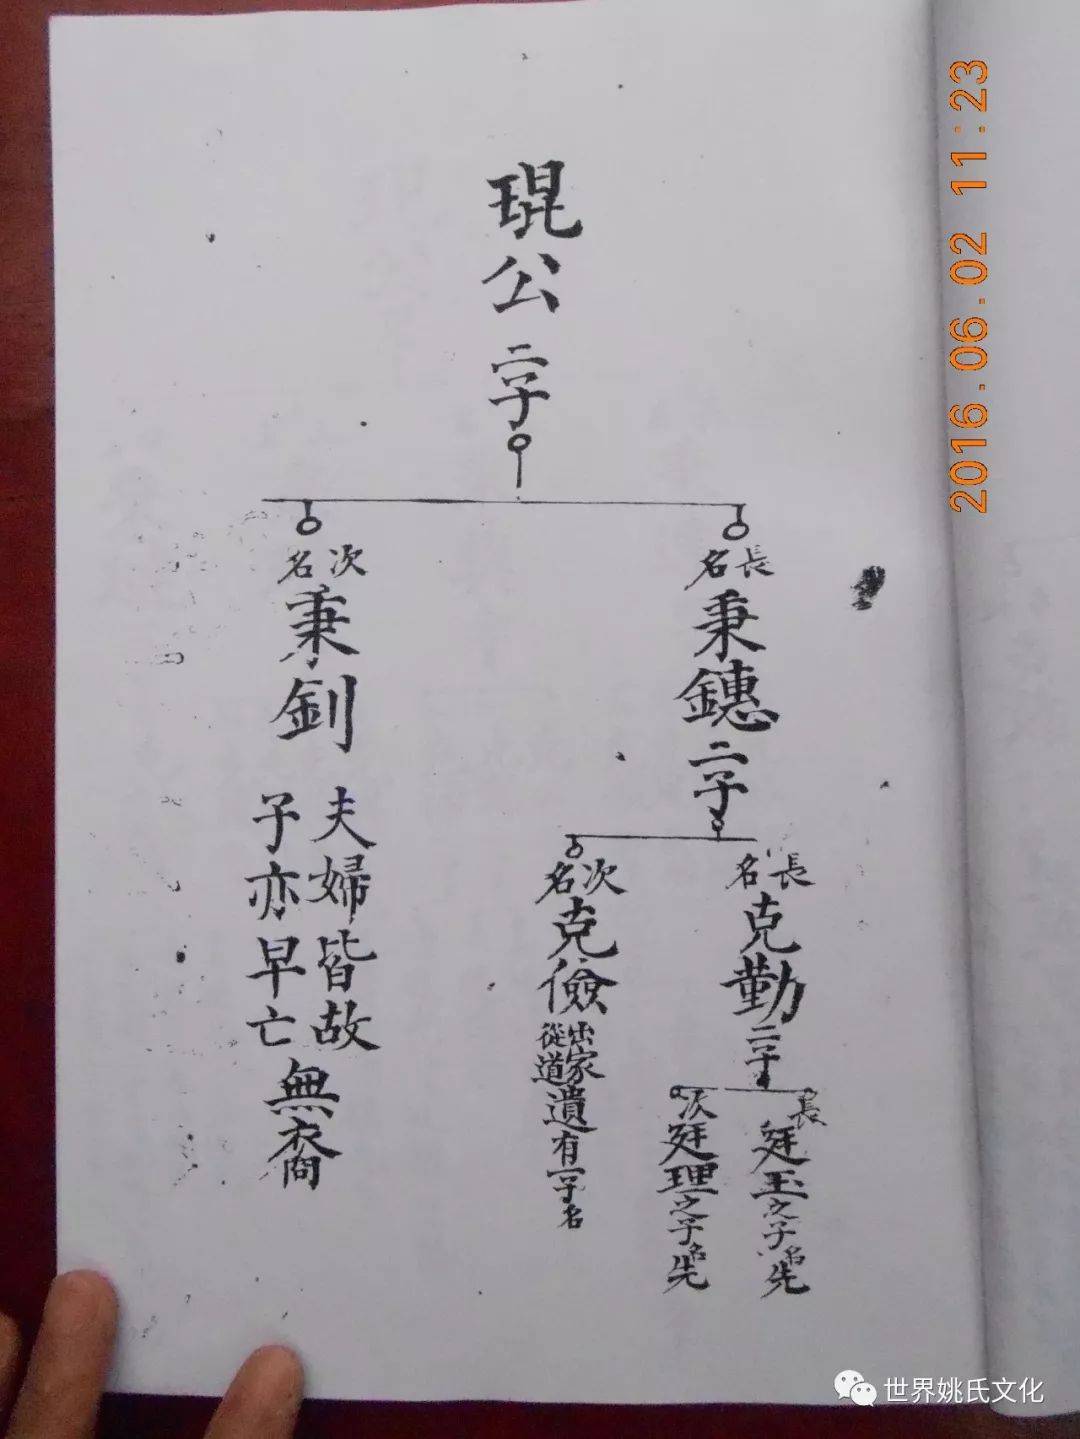 琨公二子
長名秉鏸二子
次名秉釗
夫婦皆故
子亦早亡
無裔
長名克勤二子
次名克儉
出家
從道
遺有一子名
長廷玉之子名先
次廷理之子名先
2016.06.02 11:23
世界姚氏文化